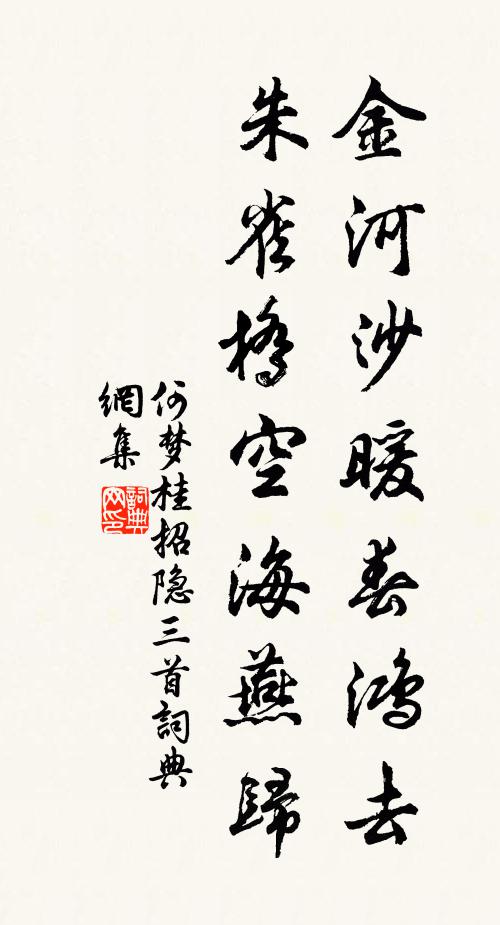 金河沙暖春鸿去
朱雀橋空海燕歸
何梦桂招隐三首詞典
網集
詞典
网印